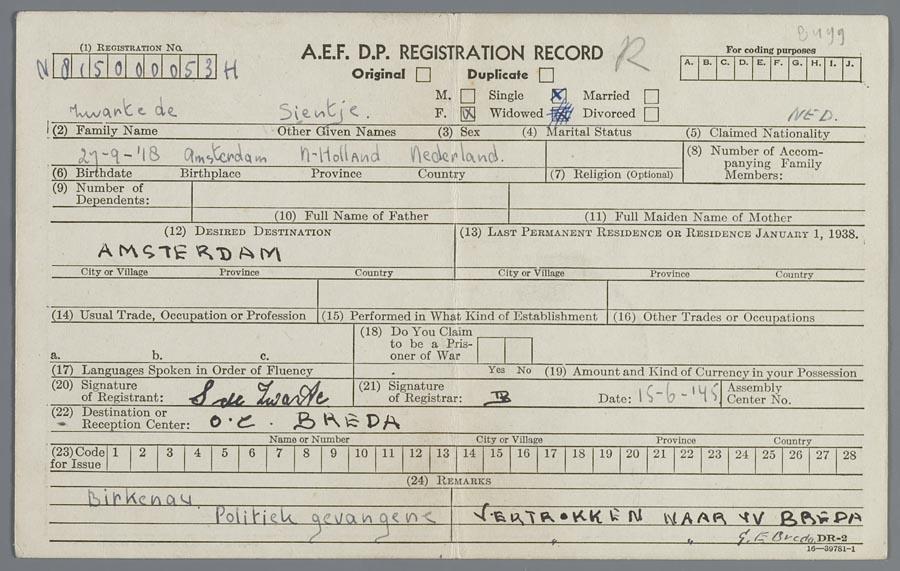 Bugg
(1) REGISTRATION NO.
A.E.F. D.P. REGISTRATION RECORD
R
For coding purposes
N 815000053 H
Original Duplicate
A. B. C. D. E. F. G. H. I. J.
M. Single Married
Zwarte de Sientje. F. Widowed Divorced NED.
(2) Family Name Other Given Names (3) Sex (4) Marital Status (5) Claimed Nationality
27-9-'18 Amsterdam N-Holland Nederland.
(8) Number of Accom-
panying Family
Members:
(6) Birthdate Birthplace Province Country (7) Religion (Optional)
(9) Number of
Dependents:
(10) Full Name of Father (11) Full Maiden Name of Mother
(12) DESIRED DESTINATION (13) LAST PERMANENT RESIDENCE OR RESIDENCE JANUARY 1, 1938.
AMSTERDAM
City or Village Province Country City or Village Province Country
(14) Usual Trade, Occupation or Profession (15) Performed in What Kind of Establishment (16) Other Trades or Occupations
(18) Do You Claim
to be a Pris-
oner of War
a. b. c.
(17) Languages Spoken in Order of Fluency Yes No (19) Amount and Kind of Currency in your Possession
(20) Signature
of Registrant: S de Zwarte
(21) Signature
of Registrar:
Date: 15-6-'45
Assembly
Center No.
(22) Destination or
Reception Center: O.C. BREDA
Name or Number City or Village Province Country
(23) Code
for Issue
1 2 3 4 5 6 7 8 9 10 11 12 13 14 15 16 17 18 19 20 21 22 23 24 25 26 27 28
(24) REMARKS
Birkenau
Politiek gevangene VERTROKKEN NAAR BREDA
" " G.E Breda. DR-2
16—39781-1